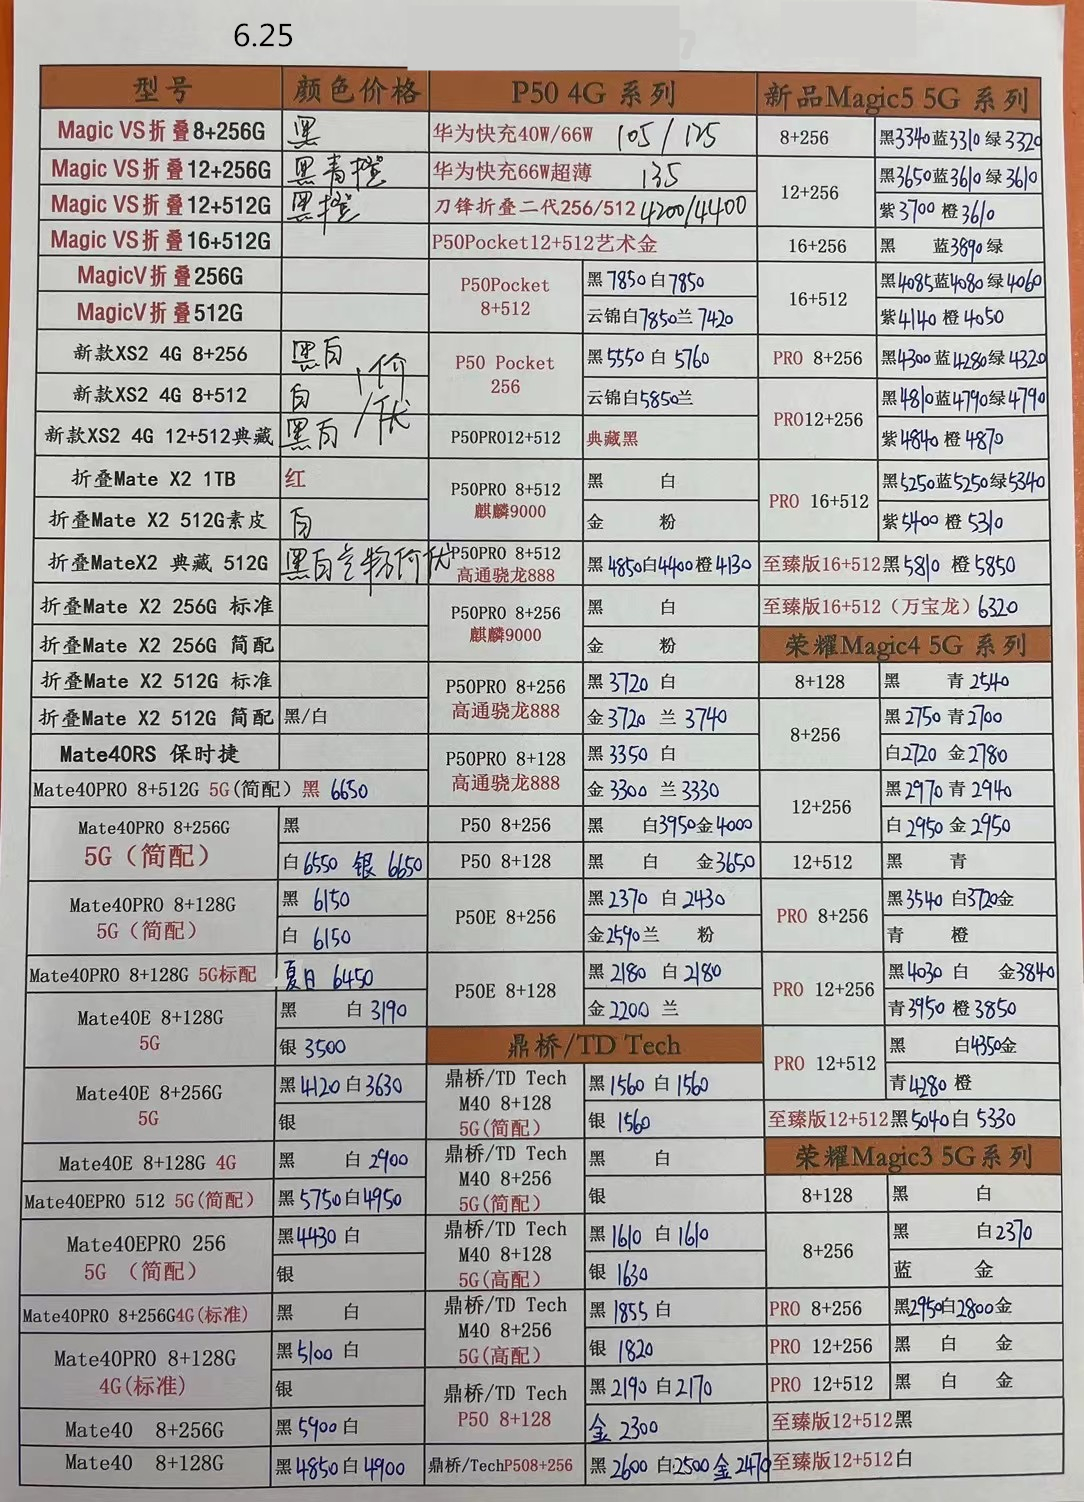 6.25
型号 颜色价格 P50 4G 系列 新品Magic5 5G 系列
Magic VS折叠8+256G 黑
Magic VS折叠12+256G 黑青橙
Magic VS折叠12+512G 黑橙
Magic VS折叠16+512G
MagicV折叠256G
MagicV折叠512G
新款XS2 4G 8+256 黑白
新款XS2 4G 8+512 白
新款XS2 4G 12+512典藏 黑白
、价
/优
折叠Mate X2 1TB 红
折叠Mate X2 512G素皮 白
折叠MateX2 典藏 512G 黑白
折叠Mate X2 256G 标准
折叠Mate X2 256G 简配
折叠Mate X2 512G 标准
折叠Mate X2 512G 简配 黑/白
Mate40RS 保时捷
Mate40PRO 8+512G 5G(简配) 黑 6650
Mate40PRO 8+256G
5G(简配)
黑
白6550 银 6650
Mate40PRO 8+128G
5G(简配)
黑 6150
白 6150
Mate40PRO 8+128G 5G标配 夏日 6450
Mate40E 8+128G
5G
黑 白3190
银 3500
Mate40E 8+256G
5G
黑4120白3630
银
Mate40E 8+128G 4G 黑 白2900
Mate40EPRO 512 5G(简配) 黑5750白4950
Mate40EPRO 256
5G (简配)
黑4430 白
银
Mate40PRO 8+256G4G(标准) 黑 白
Mate40PRO 8+128G
4G(标准)
黑5100 白
银
Mate40 8+256G 黑5900白
Mate40 8+128G 黑4850白4900
华为快充40W/66W 105/125
华为快充66W超薄 135
刀锋折叠二代256/512 4200/4400
P50Pocket12+512艺术金
P50Pocket
8+512
黑7850白7850
云锦白7850兰 7420
P50 Pocket
256
黑5550 白 5760
云锦白5850兰
P50PRO12+512 典藏黑
P50PRO 8+512
麒麟9000
黑 白
金 粉
P50PRO 8+512
高通骁龙888
黑4850白4400橙4130
P50PRO 8+256
麒麟9000
黑 白
金 粉
P50PRO 8+256
高通骁龙888
黑3720 白
金3720 兰 3740
P50PRO 8+128
高通骁龙888
黑3350 白
金 3300 兰3330
P50 8+256 黑 白3950金4000
P50 8+128 黑 白 金3650
P50E 8+256
黑2370 白2430
金2590兰 粉
P50E 8+128
黑2180 白2180
金2200 兰
鼎桥/TD Tech
鼎桥/TD Tech
M40 8+128
5G(简配)
黑1560 白1560
银 1560
鼎桥/TD Tech
M40 8+256
5G(简配)
黑 白
银
鼎桥/TD Tech
M40 8+128
5G(高配)
黑1610 白1610
银 1630
鼎桥/TD Tech
M40 8+256
5G(高配)
黑1855 白
银 1820
鼎桥/TD Tech
P50 8+128
黑2190 白2170
金 2300
鼎桥/TechP508+256 黑2600 白2500 金2470
8+256 黑3340蓝3310 绿3320
12+256
黑3650蓝3610 绿3610
紫3700 橙3610
16+256 黑 蓝3890绿
16+512
黑4085蓝4080 绿4060
紫4140 橙4050
PRO 8+256 黑4300 蓝4280绿4320
PRO12+256
黑4810蓝4790绿4790
紫4840 橙4870
PRO 16+512
黑5250蓝5250绿5340
紫5400 橙5310
至臻版16+512黑5810 橙5850
至臻版16+512(万宝龙)6320
荣耀Magic4 5G 系列
8+128 黑 青2540
8+256
黑2750 青2700
白2720 金2780
12+256
黑2970 青2940
白2950 金2950
12+512 黑 青
PRO 8+256
黑3540 白3720金
青 橙
PRO 12+256
黑4030 白 金3840
青3950 橙3850
PRO 12+512
黑 白4350金
青4280 橙
至臻版12+512黑5040白 5330
荣耀Magic3 5G系列
8+128 黑 白
8+256
黑 白2370
蓝 金
PRO 8+256 黑2950白2800金
PRO 12+256 黑 白 金
PRO 12+512 黑 白 金
至臻版12+512黑
至臻版12+512白